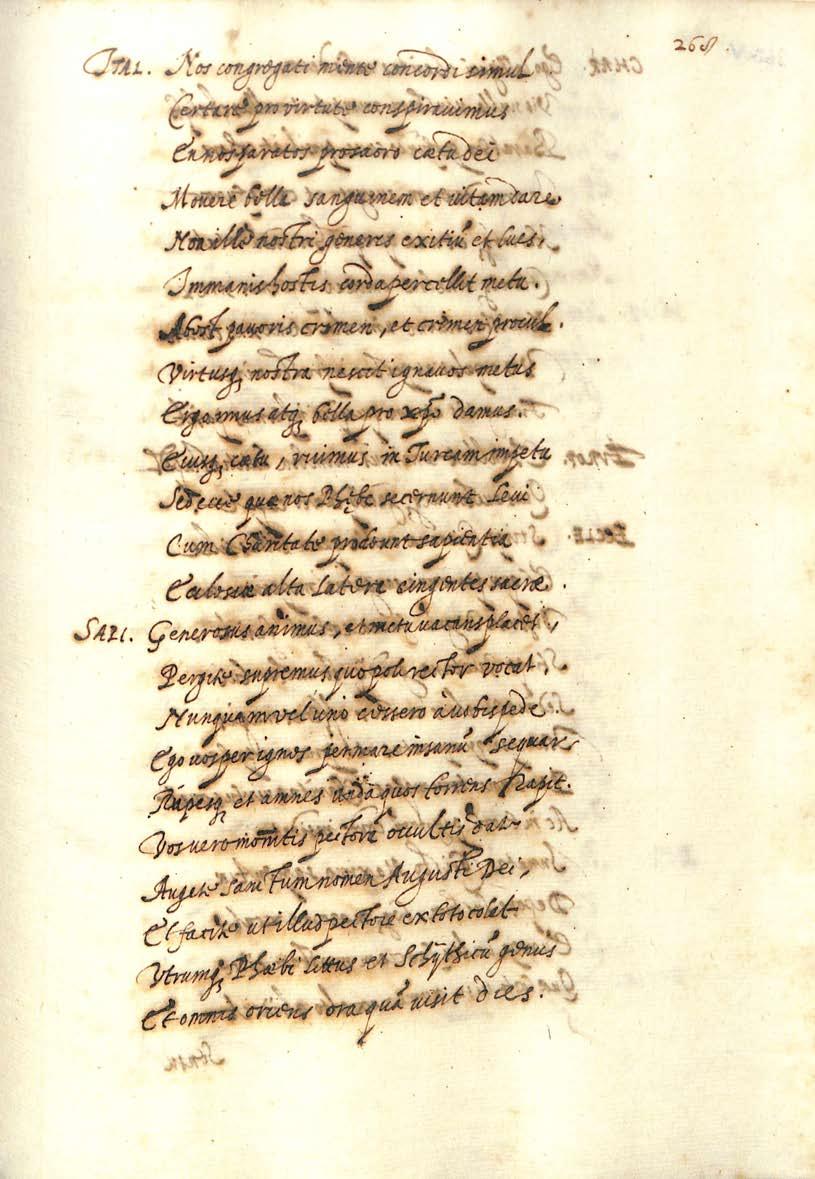 268
ITAL. Nos congregati mente concordi simul
Certare pro virtute conspiravimus
En nos paratos pro sacro cætu dei
Movere bella sanguinem et vitam dare
Non ille nostri generis exitiũ et lues,
Immanis hostis corda percellit metu.
Abest pavoris crimen, et crimen procul.
Virtusq; nostra nescit ignavos metus
Ergo imus atq; bella pro xpo damus.
Eiusq; cætu, ruimus in Turcam impetu
Sed ecce quæ nos Phębe secernunt Levi
Cum Charitate prodeunt sapientia
Eclesiæ alta latera cingentes sacræ.
SAPI. Generosus animus, et metu vacans placet,
Pergite supremus quo poli rector vocat,
Nunquam vel uno cessero à vobis pede
Ego vos per ignes per mare insanũ sequar
Rupesq; et amnes unda quos torrens rapit.
Vos vero monitis pectore occultis
Augete sanctum nomen Augusti Dei,
Et facite ut illud pectore ex toto colat
Utrumq; Phæbi littus et Schÿthicũ genus
Et omnis oriens ora quã visit dies.